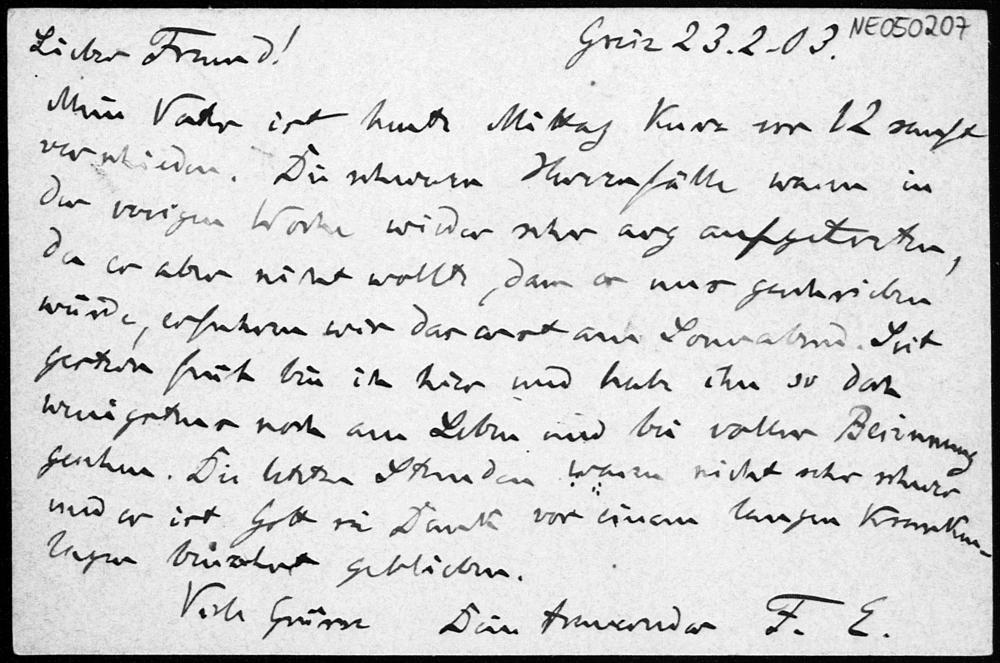 Lieber Freund! Greiz 23.2.03. NE050207
Mein Vater ist heute Mittag kurz vor 12 sanft
verschieden. Die schweren Herzanfälle waren in
der vorigen Woche wieder sehr arg aufgetreten,
da er aber nicht wollte, dass er uns geschrieben
würde, erfuhren wir das erst am Sonnabend. Seit
gestern früh bin ich hier und habe ihn so doch
wenigstens noch am Leben und bei voller Besinnung
gesehen. Die letzten Stunden waren nicht sehr schwer
und er ist Gott sei Dank vor einem langen Kranken-
lager bewahrt geblieben.
Viele Grüsse Dein trauernder F. E.